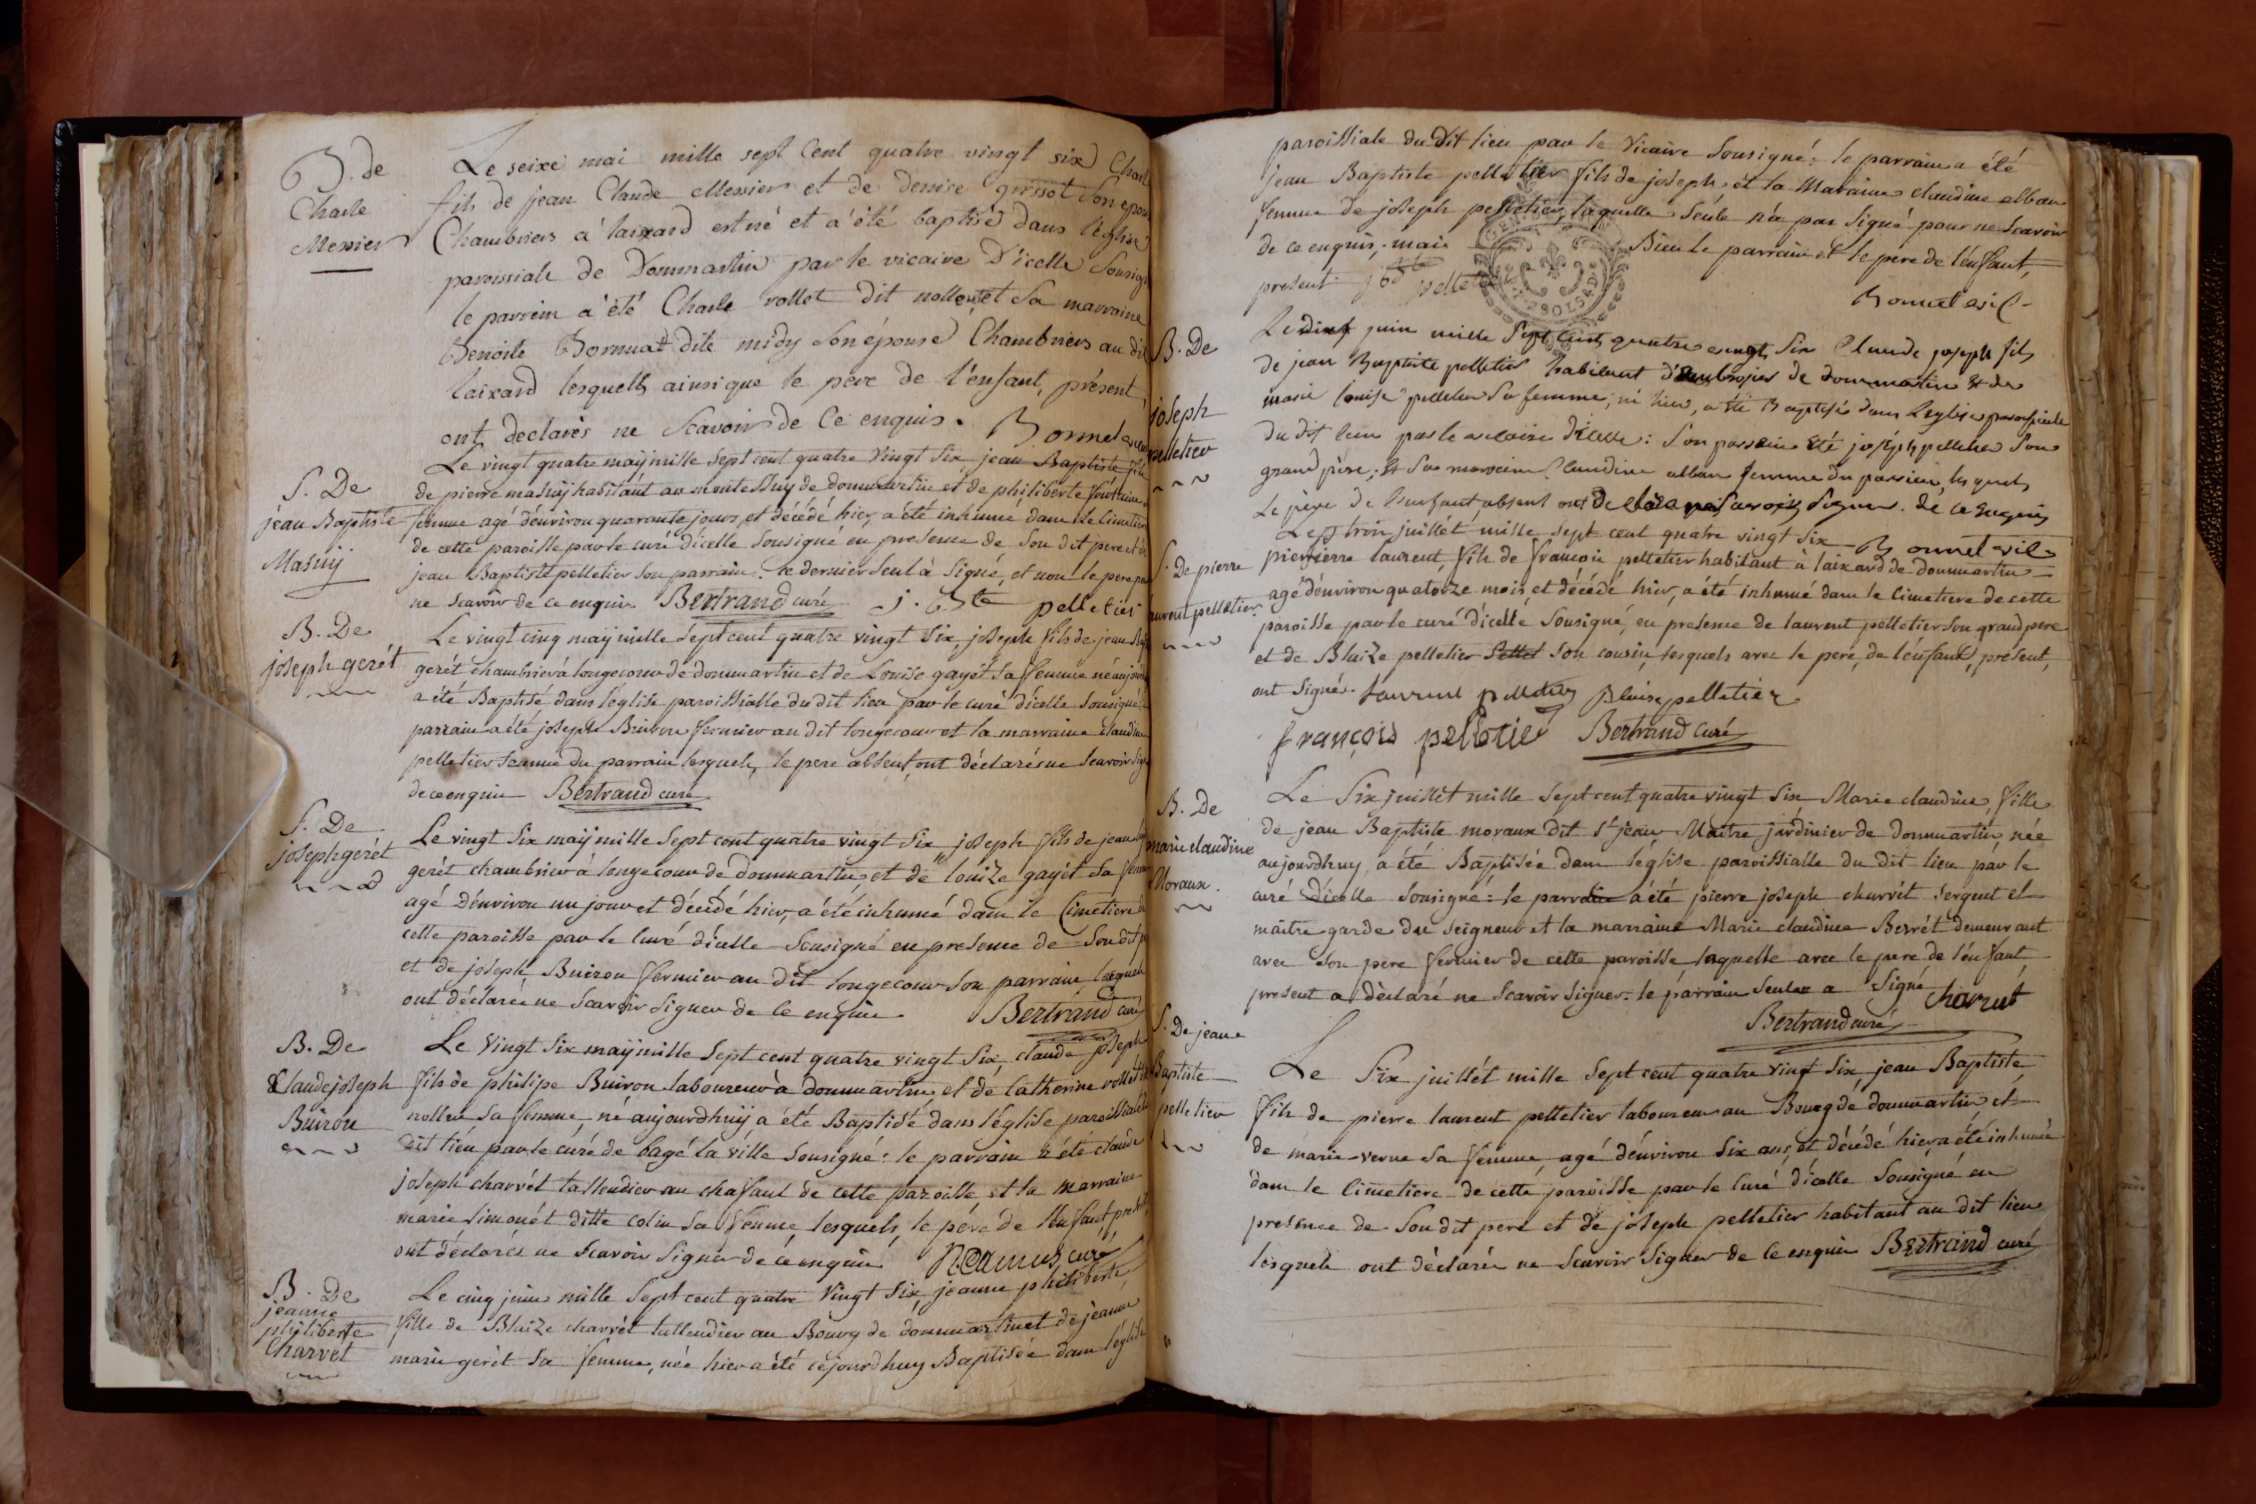 B. de
Charle
Messier
Le seize mai mille sept Cent quatre vingt six Charle
fils de jean Claude Messier et de denise grissot Son epouse
Chambriers à laixard est né et a été baptisé dans l'église
paroissiale de Dommartin par le vicaire D'icelle Sousigné
le parrein a été Charle vollet dit nolle et Sa marraine
Benoite Bornuat dite midy Son épouse Chambriers au dit
laixard lesquells ainsi que le pere de l'enfant, présent,
ont declarés ne Scavoir de Ce enquis. Bonnel vicaire
S. De
jean Baptiste
Masuÿ
Le vingt quatre maÿ mille Sept cent quatre Vingt Six, jean Baptiste fils
de pierre masuÿ habitant au montessuy de dommartin et de philiberte fontaine
femme agé d'environ quarante jours, et décédé hier, a été inhumé dans le Cimetiere
de cette paroisse par le curé d'icelle Sousigné en presence de Son dit pere et de
jean Baptiste pelletier Son parrain: ce dernier seul à Signé, et non le pere pour
ne Scavoir de ce enquis Bertrand curé J. Bte pelletier
B. De
joseph gerét
Le vingt cinq maÿ mille Sept cent quatre vingt Six, joseph fils de jean
gerét chambrier à longecour de dommartin et de Louise gayét Sa femme né aujourdhuy
a été Baptisé dans l'eglise paroissialle du dit lieu par le curé d'icelle Sousigné:
parrain a été joseph Buiron fermier au dit longecour et la marraine claudine
pelletier femme du parrain lesquels, le pere absent, ont déclarés ne Scavoir Signer
de ce enquis Bertrand curé
S. De
joseph gerét
Le vingt Six maÿ mille Sept cent quatre vingt Six joseph fils de jean
gerét chambrier à longecour de dommartin, et de louize gayét Sa femme
agé d'environ un jour et décédé hier, a été inhumé dans le Cimetiere de
cette paroisse par le Curé d'icelle Sousigné en presence de Son dit pere
et de joseph Buiron fermier au dit longecour Son parrain lesquels
ont déclarés ne Scavoir Signer de Ce enquis Bertrand curé
B. De
Claude joseph
Buiron
Le Vingt Six maÿ mille Sept cent quatre vingt Six, claude joseph
fils de philipe Buiron laboureur à dommartin, et de Catherine vollét
nollen Sa femme, né aujourdhuÿ a été Baptisé dans l'église paroissialle
dit lieu par le curé de bagé la ville Sousigné: le parrain a été claude
joseph charvét taillendier au chafaut de cette paroisse et la marraine
marie Simonét ditte colin Sa femme, lesquels, le pére de l'enfant présent
ont déclarés ne Scavoir Signer de ce enquis N. Camus, curé
B. De
jeanne
philiberte
Charvet
Le cinq juin mille Sept cent quatre Vingt Six, jeanne philiberte
fille de Blaize charvét taillendier au Bourg de dommartin et de jeanne
marie gerét Sa femme, née hier a été cejourdhuy Baptisée dans l'église
paroissiale du dit lieu par le Vicaire Sousigné: le parrain a été
jean Baptiste pelletier fils de joseph, et la Maraine claudine alban
femme de joseph pelletier, laquelle Seule n'a pas Signé pour ne Scavoir
de ce enquis, mais Bien le parrain et le pere de l'enfant,
present. j bte pelletier
Bonnel vic.
B. De
joseph
pelletier
Le neuf juin mille Sept Cent quatre vingt Six Claude joseph fils
de jean Baptiste pelletier habitant d'embroyes de dommartin & de
marie louise pelletier Sa femme, né hier, a été Baptisé dans l'eglise paroissiale
du dit lieu par le vicaire d'icelle: Son parrain été joseph pelletier Son
grand père, & Sa marreine Claudine alban femme du parrein, lesquels
Le père de l'enfant absent ont declaré ne Scavoir Signer. de ce Enquis
Bonnel vic.
S. De pierre
laurent pelletier
Le trois juillét mille Sept cent quatre vingt Six
pierre laurent, fils de francois pelletier habitant à laixard de dommartin
agé d'environ quatorze mois, et décédé hier, a été inhumé dans le Cimetiere de cette
paroisse par le curé d'icelle Sousigné, en presence de laurent pelletier Son grand pere
et de Blaize pelletier Son cousin, lesquels avec le pere, de l'enfant, présent,
ont Signés. Laurent pelletier Blaise pelletier
françois pelletier Bertrand curé
B. De
marie claudine
Moraux.
Le Six juillet mille Sept cent quatre vingt Six Marie claudine, fille
de jean Baptiste moraux dit St jean, Maitre jardinier de dommartin, née
aujourdhuy, a été Baptisée dans l'église paroissialle du dit lieu par le
curé d'icelle Sousigné: le parrain a été pierre joseph charvét sergent et
maitre garde du Seigneur et la marraine Marie claudine Berrét demeurant
avec Son pere fermier de cette paroisse, laquelle avec le pere de l'enfant
present a déclaré ne Scavoir Signer: le parrain Seul a Signé Charvet
Bertrand curé
S. De jean
Baptiste
pelletier
Le Six juillét mille Sept cent quatre vingt Six, jean Baptiste,
fils de pierre laurent pelletier laboureur au Bourg de dommartin et
de marie verne Sa femme, agé d'environ Six ans, et décédé hier, a été inhumé
dans le Cimetiere de cette paroisse par le Curé d'icelle Sousigné en
presence de Son dit pere et de joseph pelletier habitant au dit lieu
lesquels ont déclarés ne Scavoir Signer de Ce enquis Bertrand curé